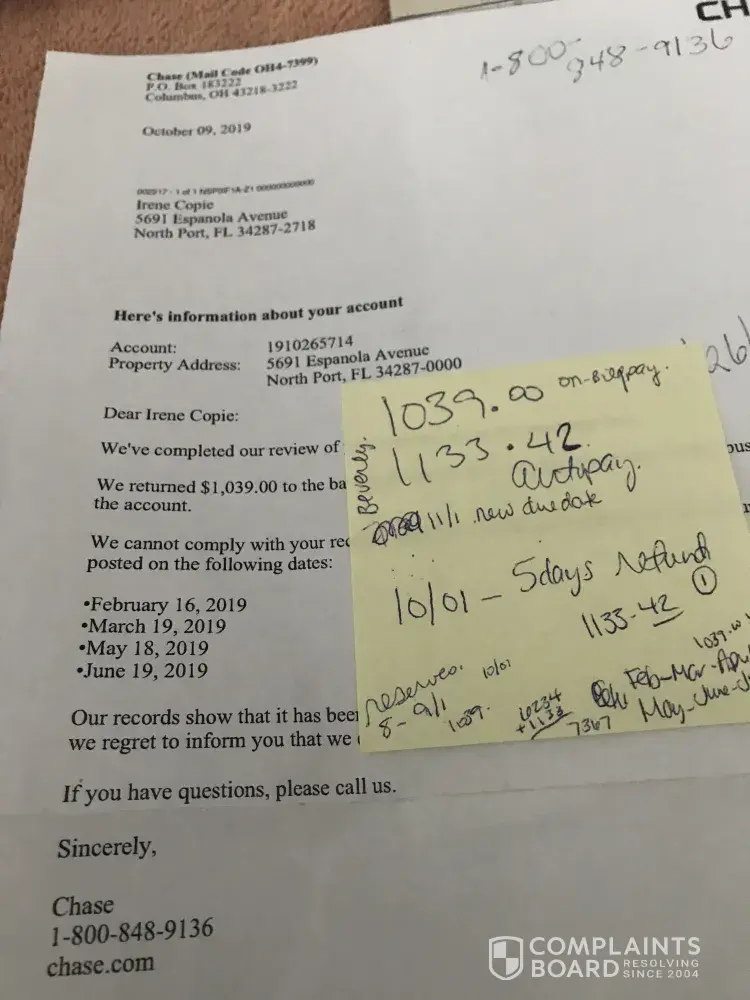 CH
1-800-
848-9136
Chase (Mail Code OH4-7399)
P.O. Box 183222
Columbus, OH 43218-3222
October 09, 2019
Irene Copie
5691 Espanola Avenue
North Port, FL 34287-2718
Here's information about your account
Account: 1910265714
Property Address: 5691 Espanola Avenue
North Port, FL 34287-0000
Dear Irene Copie:
We've completed our review of
We returned $1,039.00 to the ba
the account.
We cannot comply with your rec
posted on the following dates:
•February 16, 2019
•March 19, 2019
•May 18, 2019
•June 19, 2019
Our records show that it has been
we regret to inform you that we
If you have questions, please call us.
Sincerely,
Chase
1-800-848-9136
chase.com
26
Beverly.
1039.00 on-billpay.
1133.42
autopay.
11/1 new due date
10/01 - 5days refund
1133-42 1
reserves. 10/01
8-9/1 1039.
10234
+1133
7367
1039.00
Feb-Mar-Apr
May-June-J
COMPLAINTS
BOARD RESOLVING
SINCE 2004